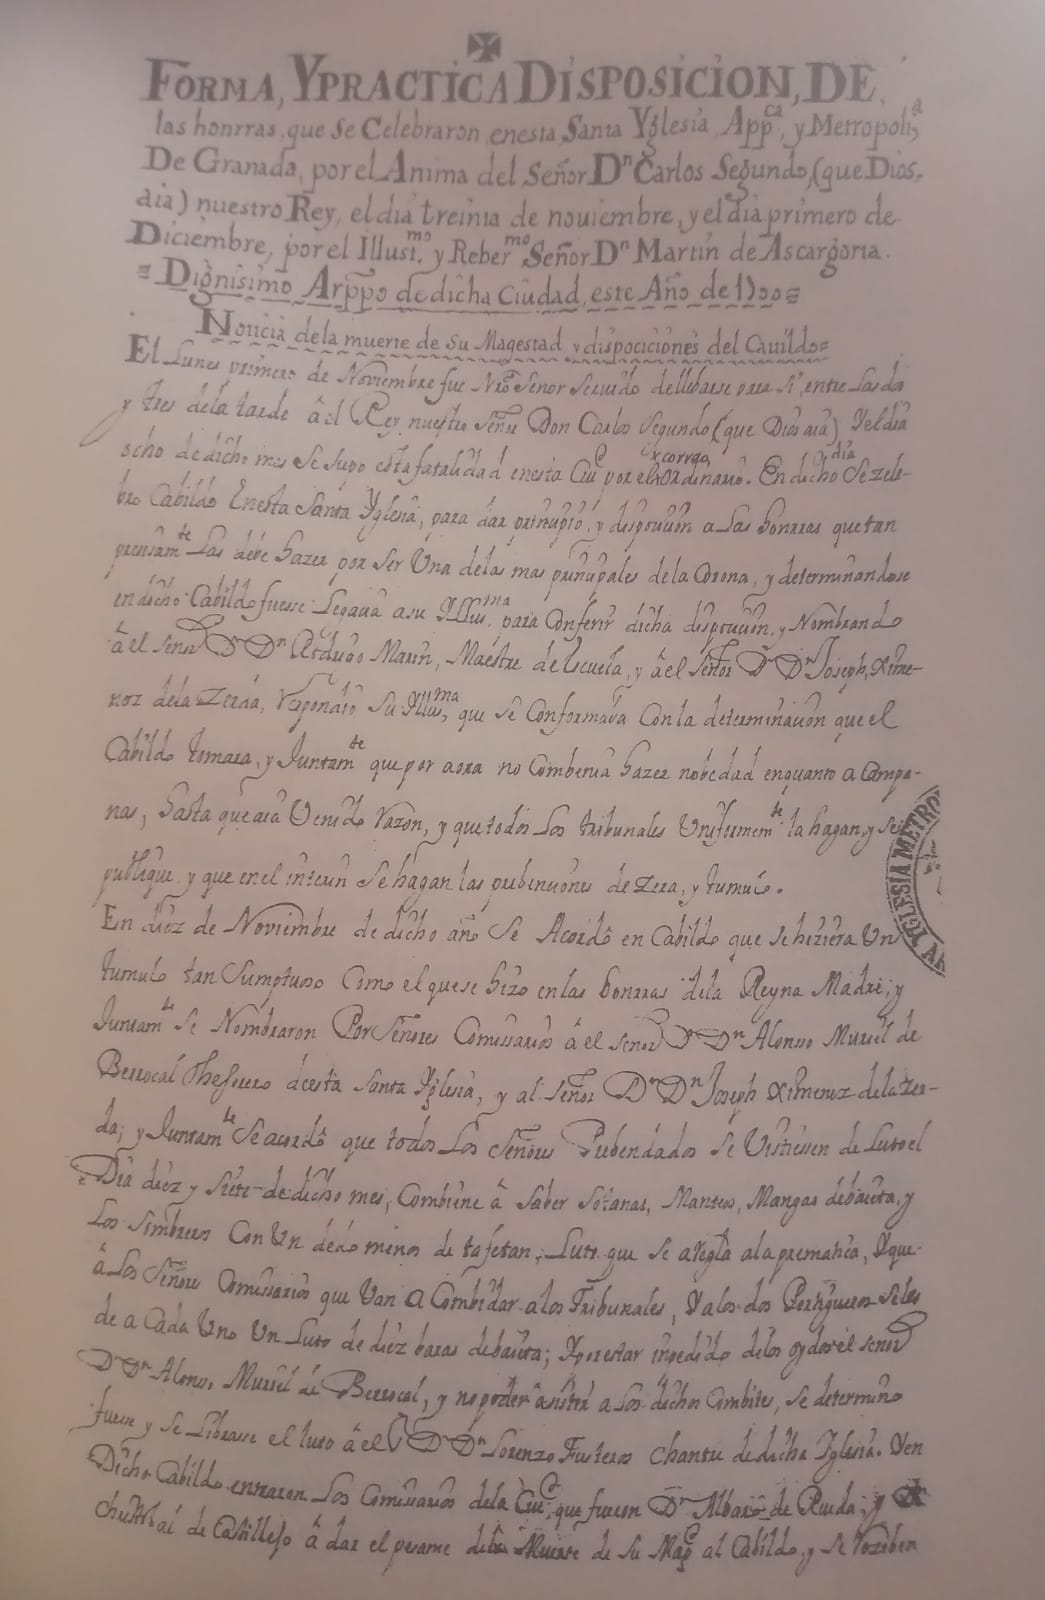 ✠
FORMA, Y PRACTICA DISPOSICION, DE
las honrras, que se Celebraron, enesta, Santa Yglesia, Appca, y Metropolia
De Granada, por el Anima del Señor Dn Carlos Segundo, (que Dios,
aia) nuestro Rey, el dia treinta de nouiembre, y el dia primero de
Diciembre, por el Illustmo. y Rebermo Señor Dn Martin de Ascargorta.
= Dignisimo Arppo de dicha Ciudad, este Año de 1700=
Noticia dela muerte de Su Magestad y dispociciones del Cauildo=
El Lunes primero de Noviembre fue Nro Señor Seruido dellebarse para Si, entre las dos
y tres dela tarde â el Rey nuestro Señor Don Carlos Segundo (que Dios aia) Y el dia
ocho de dicho mes se supo esta fatalidad enesta Ciud por el xcorreo Ordinario. En dicho dia Se zele-
bro Cabildo Enesta Santa Yglesia, para dar principio, y dispocicion a las honrras que tan
presisamte Las debe hazer por ser Una delas mas principales de la Corona, y determinandose
en dicho Cabildo fuesse Legacia a su Illusma. para Conferir dicha dispocicion, y Nombrando
â el Señor Dr Dn Marin, Maestre de Escuela, y â el Señor Dr Dn Joseph, Xime-
nez dela Zerda, Respondio Su Illusma, que se Conformaba Con la determinacion que el
Cabildo tomara, y Juntamte que por aora no Combenia hazer nobedad enquanto a Campa-
nas, hasta que aia Venido Razon, y que todos Los tribunales Uniformemte la hagan, y se
publique, y que en el interin Se hagan las prebenciones de Zera, y tumulo.
En diez de Noviembre de dicho año Se Acordô en Cabildo que se hiziera Un
tumulo tan Sumptuoso Como el que se hizo en las honrras dela Reyna Madre; y
Juntamte se Nombraron Por Señores Comissarios â el señor Dr Dn Alonso Muriel de
Berrocal Thesorero desta Santa Yglesia, y al Señor Dr Dn Joseph Ximenez de la Zer-
da; y Juntamte Se acordô que todos Los Señores Prebendados se Vistiesen de Luto el
Dia diez y siete de dicho mes, Combiene â Saber Sotanas, Manteos, Mangas debaieta, y
Los Sombreros Con Un dedo menos de tafetan, Luto que se aregla ala prematica, Y que
â Los Señores Comissarios que Van a Combidar alos Tribunales, Y alos dos Pertigueros Seles
de a Cada Uno Un Luto de diez baras debaieta; Y por estar inpedido delos ojos el señor
Dr Dn Alonso Muriel de Berrocal, y no poder asistir a los dichos Combites, se determino
fuese y se Librasse el luto â el Sr Dr Dn Lorenzo Fusteros Chantre de dicha Yglesia. Y en
Dicho Cabildo entraron Los Comissarios dela Ciud, que fueron Dn Albaro de Rueda; y Dn
Christobal de Castillejo â dar el pesame dela Muerte de Su Magd al Cabildo, y se reziben
YGLESIA METRO